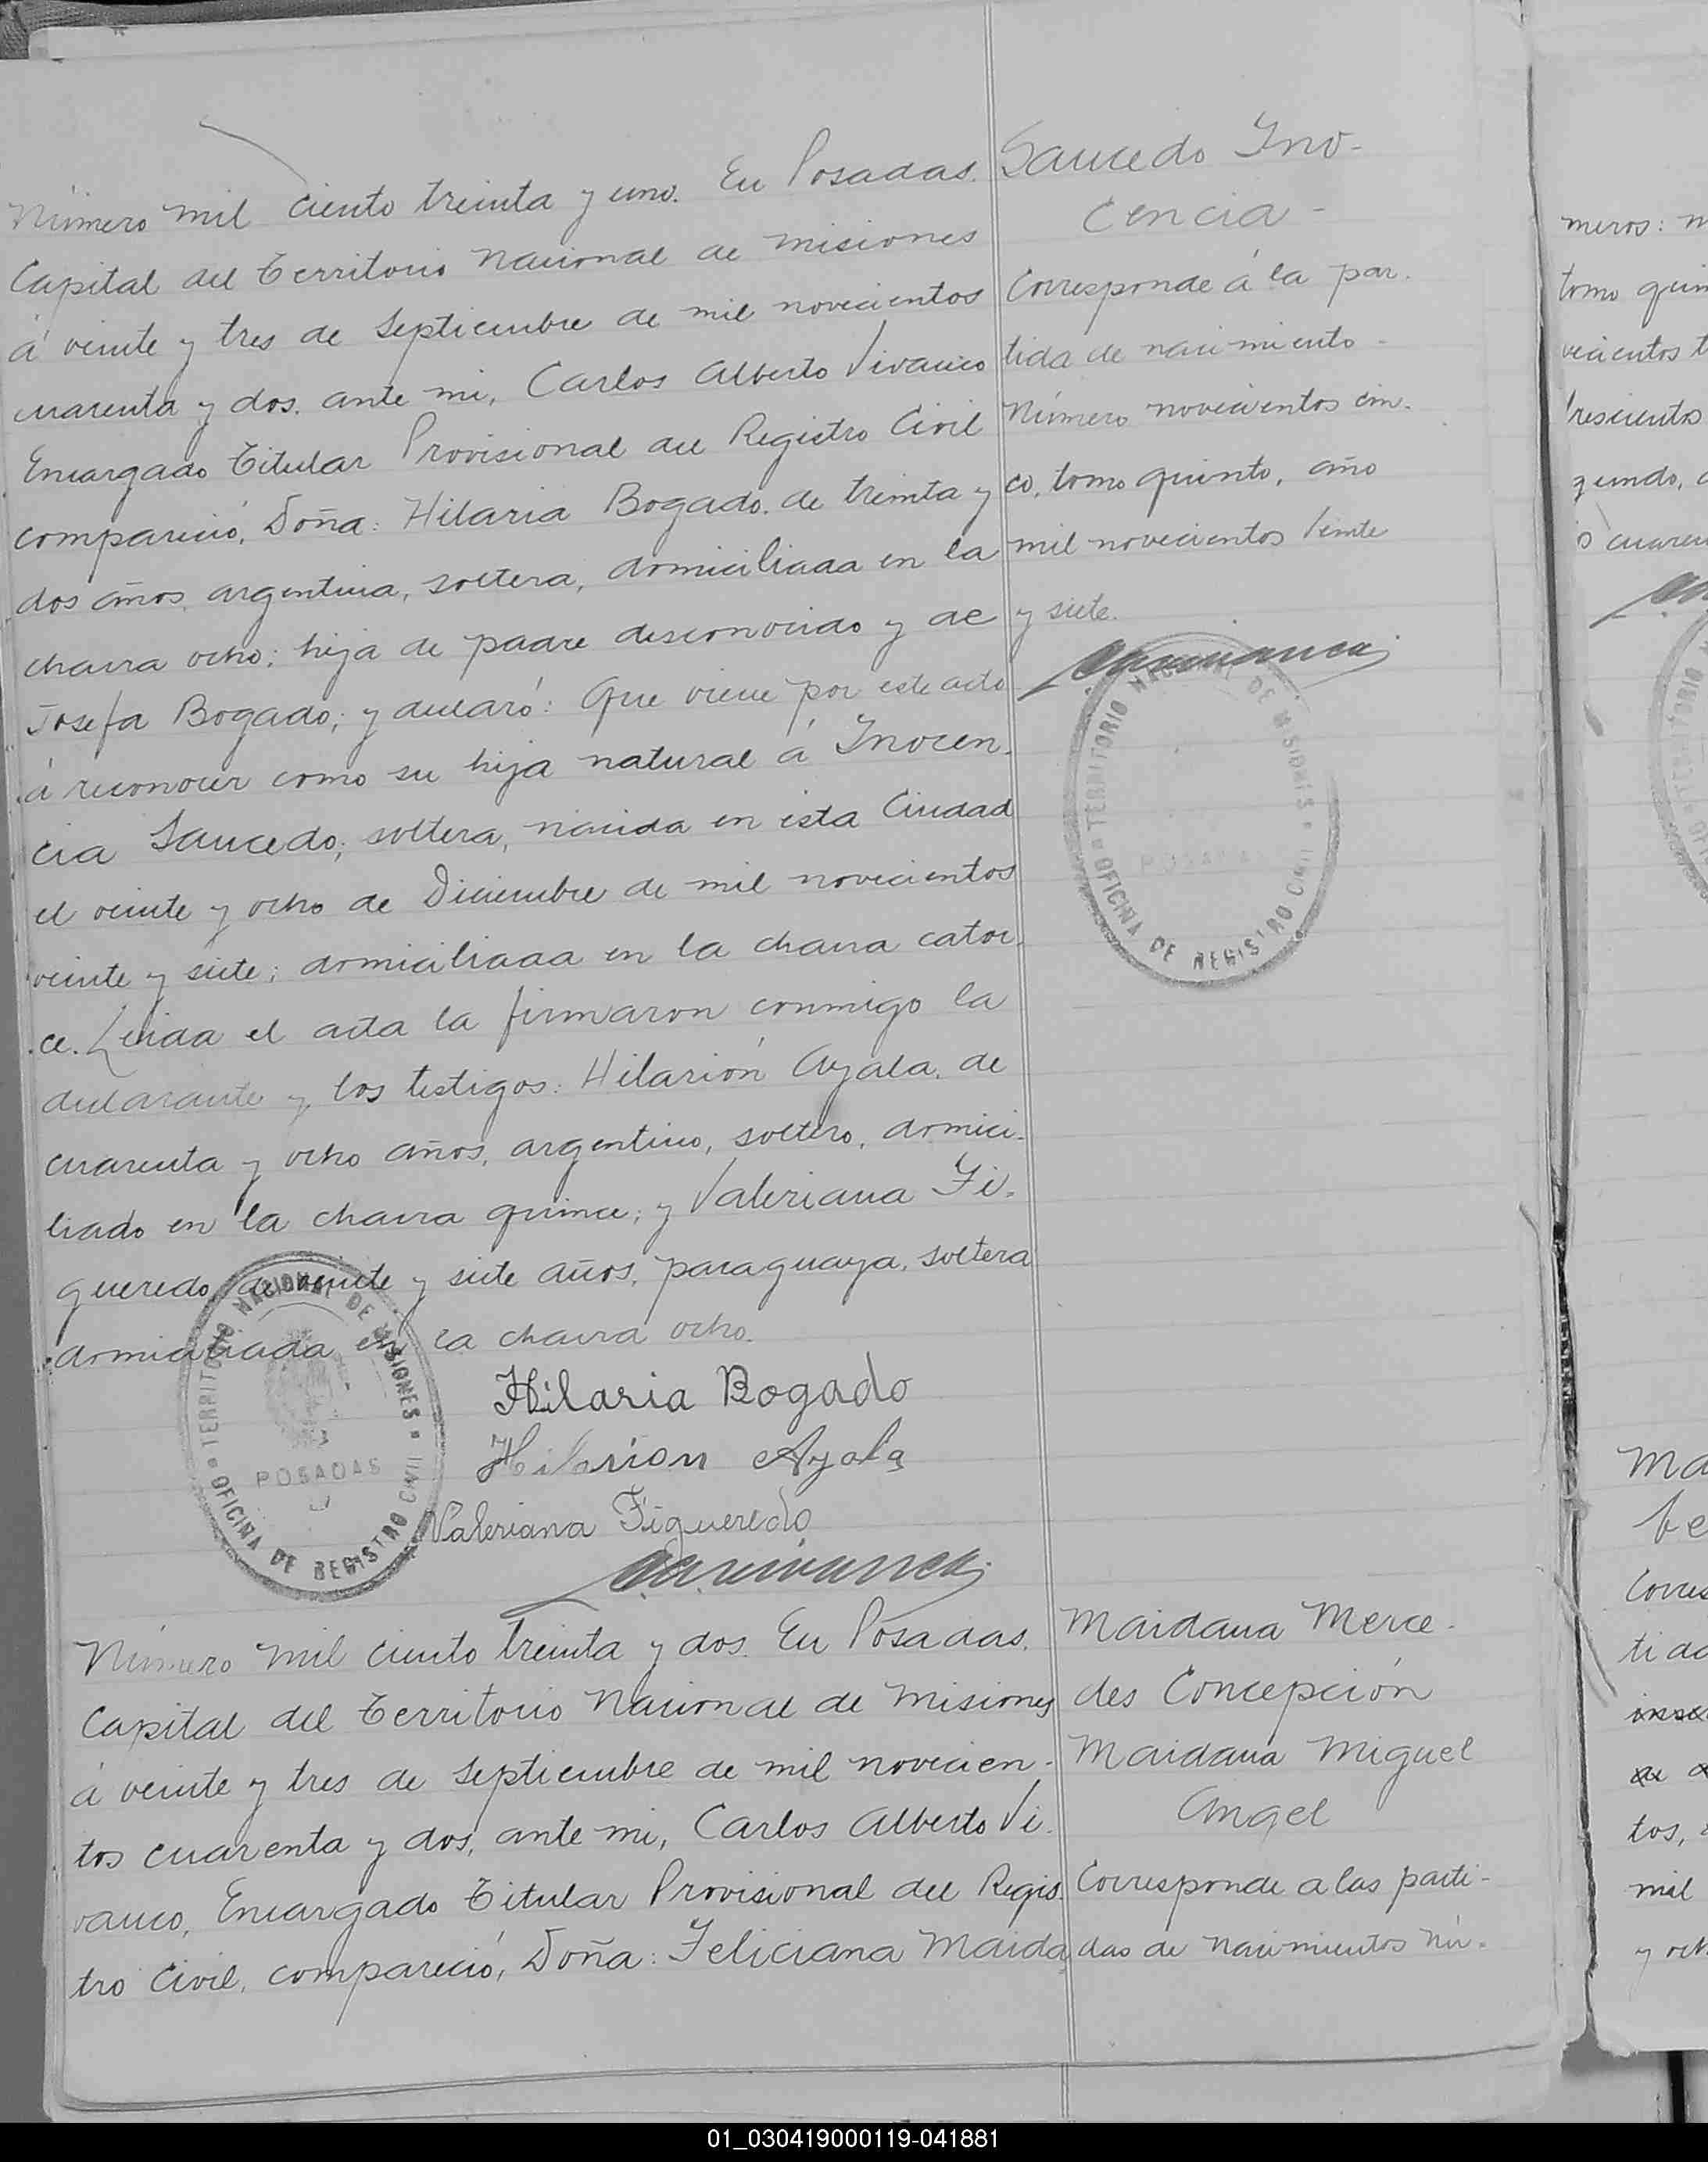 Número mil ciento treinta y uno. En Posadas.
Capital del Territorio Nacional de Misiones
á veinte y tres de Septiembre de mil novecientos
cuarenta y dos, ante mi, Carlos Alberto Vivanco
Encargado Titular Provisional del Registro Civil
compareció, Doña: Hilaria Bogado, de treinta y
dos años, argentina, soltera, domiciliada en la
chacra ocho; hija de padre desconocido y de
Josefa Bogado; y declaró: Que viene por este acto
á reconocer como su hija natural á Inocen-
cia Saucedo, soltera, nacida en esta Ciudad
el veinte y ocho de Diciembre de mil novecientos
veinte y siete; domiciliada en la chacra cator-
ce. Leida el acta la firmaron conmigo la
declarante y los testigos: Hilarión Ayala, de
cuarenta y ocho años, argentino, soltero, domici-
liado en la chacra quince; y Valeriana Fi-
gueredo, de veinte y siete años, paraguaya, soltera
domiciliada en la chacra ocho.
Hilaria Bogado
Hilarion Ayala
Valeriana Figueredo
TERRITORIO NACIONAL DE MISIONES
POSADAS
OFICINA DE REGISTRO CIVIL
Saucedo Ino-
cencia -
Corresponde á la par-
tida de nacimiento -
Número novecientos cin-
co, tomo quinto, año
mil novecientos veinte
y siete.
TERRITORIO NACIONAL DE MISIONES
POSADAS
OFICINA DE REGISTRO CIVIL
Número mil ciento treinta y dos. En Posadas.
Capital del Territorio Nacional de Misiones
á veinte y tres de Septiembre de mil novecien-
tos cuarenta y dos, ante mi, Carlos Alberto Vi-
vanco, Encargado Titular Provisional del Regis-
tro Civil, compareció, Doña: Feliciana Maida
Maidana Merce-
des Concepción
Maidana Miguel
Angel
Corresponde a las parti-
das de nacimientos Nú-
meros:
tomo
vecientos
trescientos
gundo,
tos,
mil
01_030419000119-041881